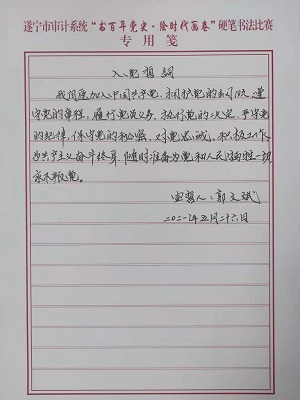 遂宁市审计系统“书百年党史·绘时代画卷”硬笔书法比赛
专用笺
入党誓词
我志愿加入中国共产党，拥护党的纲领，遵
守党的章程，履行党员义务，执行党的决定，严守党
的纪律，保守党的秘密，对党忠诚，积极工作，
为共产主义奋斗终身，随时准备为党和人民牺牲一切，
永不叛党。
宣誓人：郭文斌
二〇二一年五月二十六日